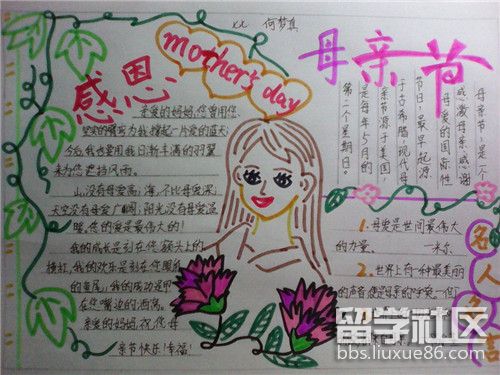 x2 何梦真
mother's day
感恩
母亲节
亲爱的妈妈,您曾用您
坚实的臂弯为我撑起一片爱的蓝天;
今后我也要用我日渐丰满的羽翼
来为您遮挡风雨。
山,没有母爱高;海,不比母爱深;
天空没有母爱广阔,阳光没有母爱温
暖,您的爱是最伟大的!
我的成长是刻在您额头上的
横杠,我的欢乐是刻在您眼角
的鱼尾,我的成功是印
在您嘴边的酒窝。
亲爱的妈妈,祝您母
亲节快乐!幸福!
母亲节,是一个
感激母亲,感谢
母爱的国际性
节日,最早起源
于古希腊,现代母
亲节源于美国,
是每年5月的
第二个星期日。
1.母爱是世间最伟大
的力量。 —米尔
2.世界上有一种最美丽
的声音,便是母亲的呼唤。—但丁
名人名言
留学社区
bbs.liuxue86.com